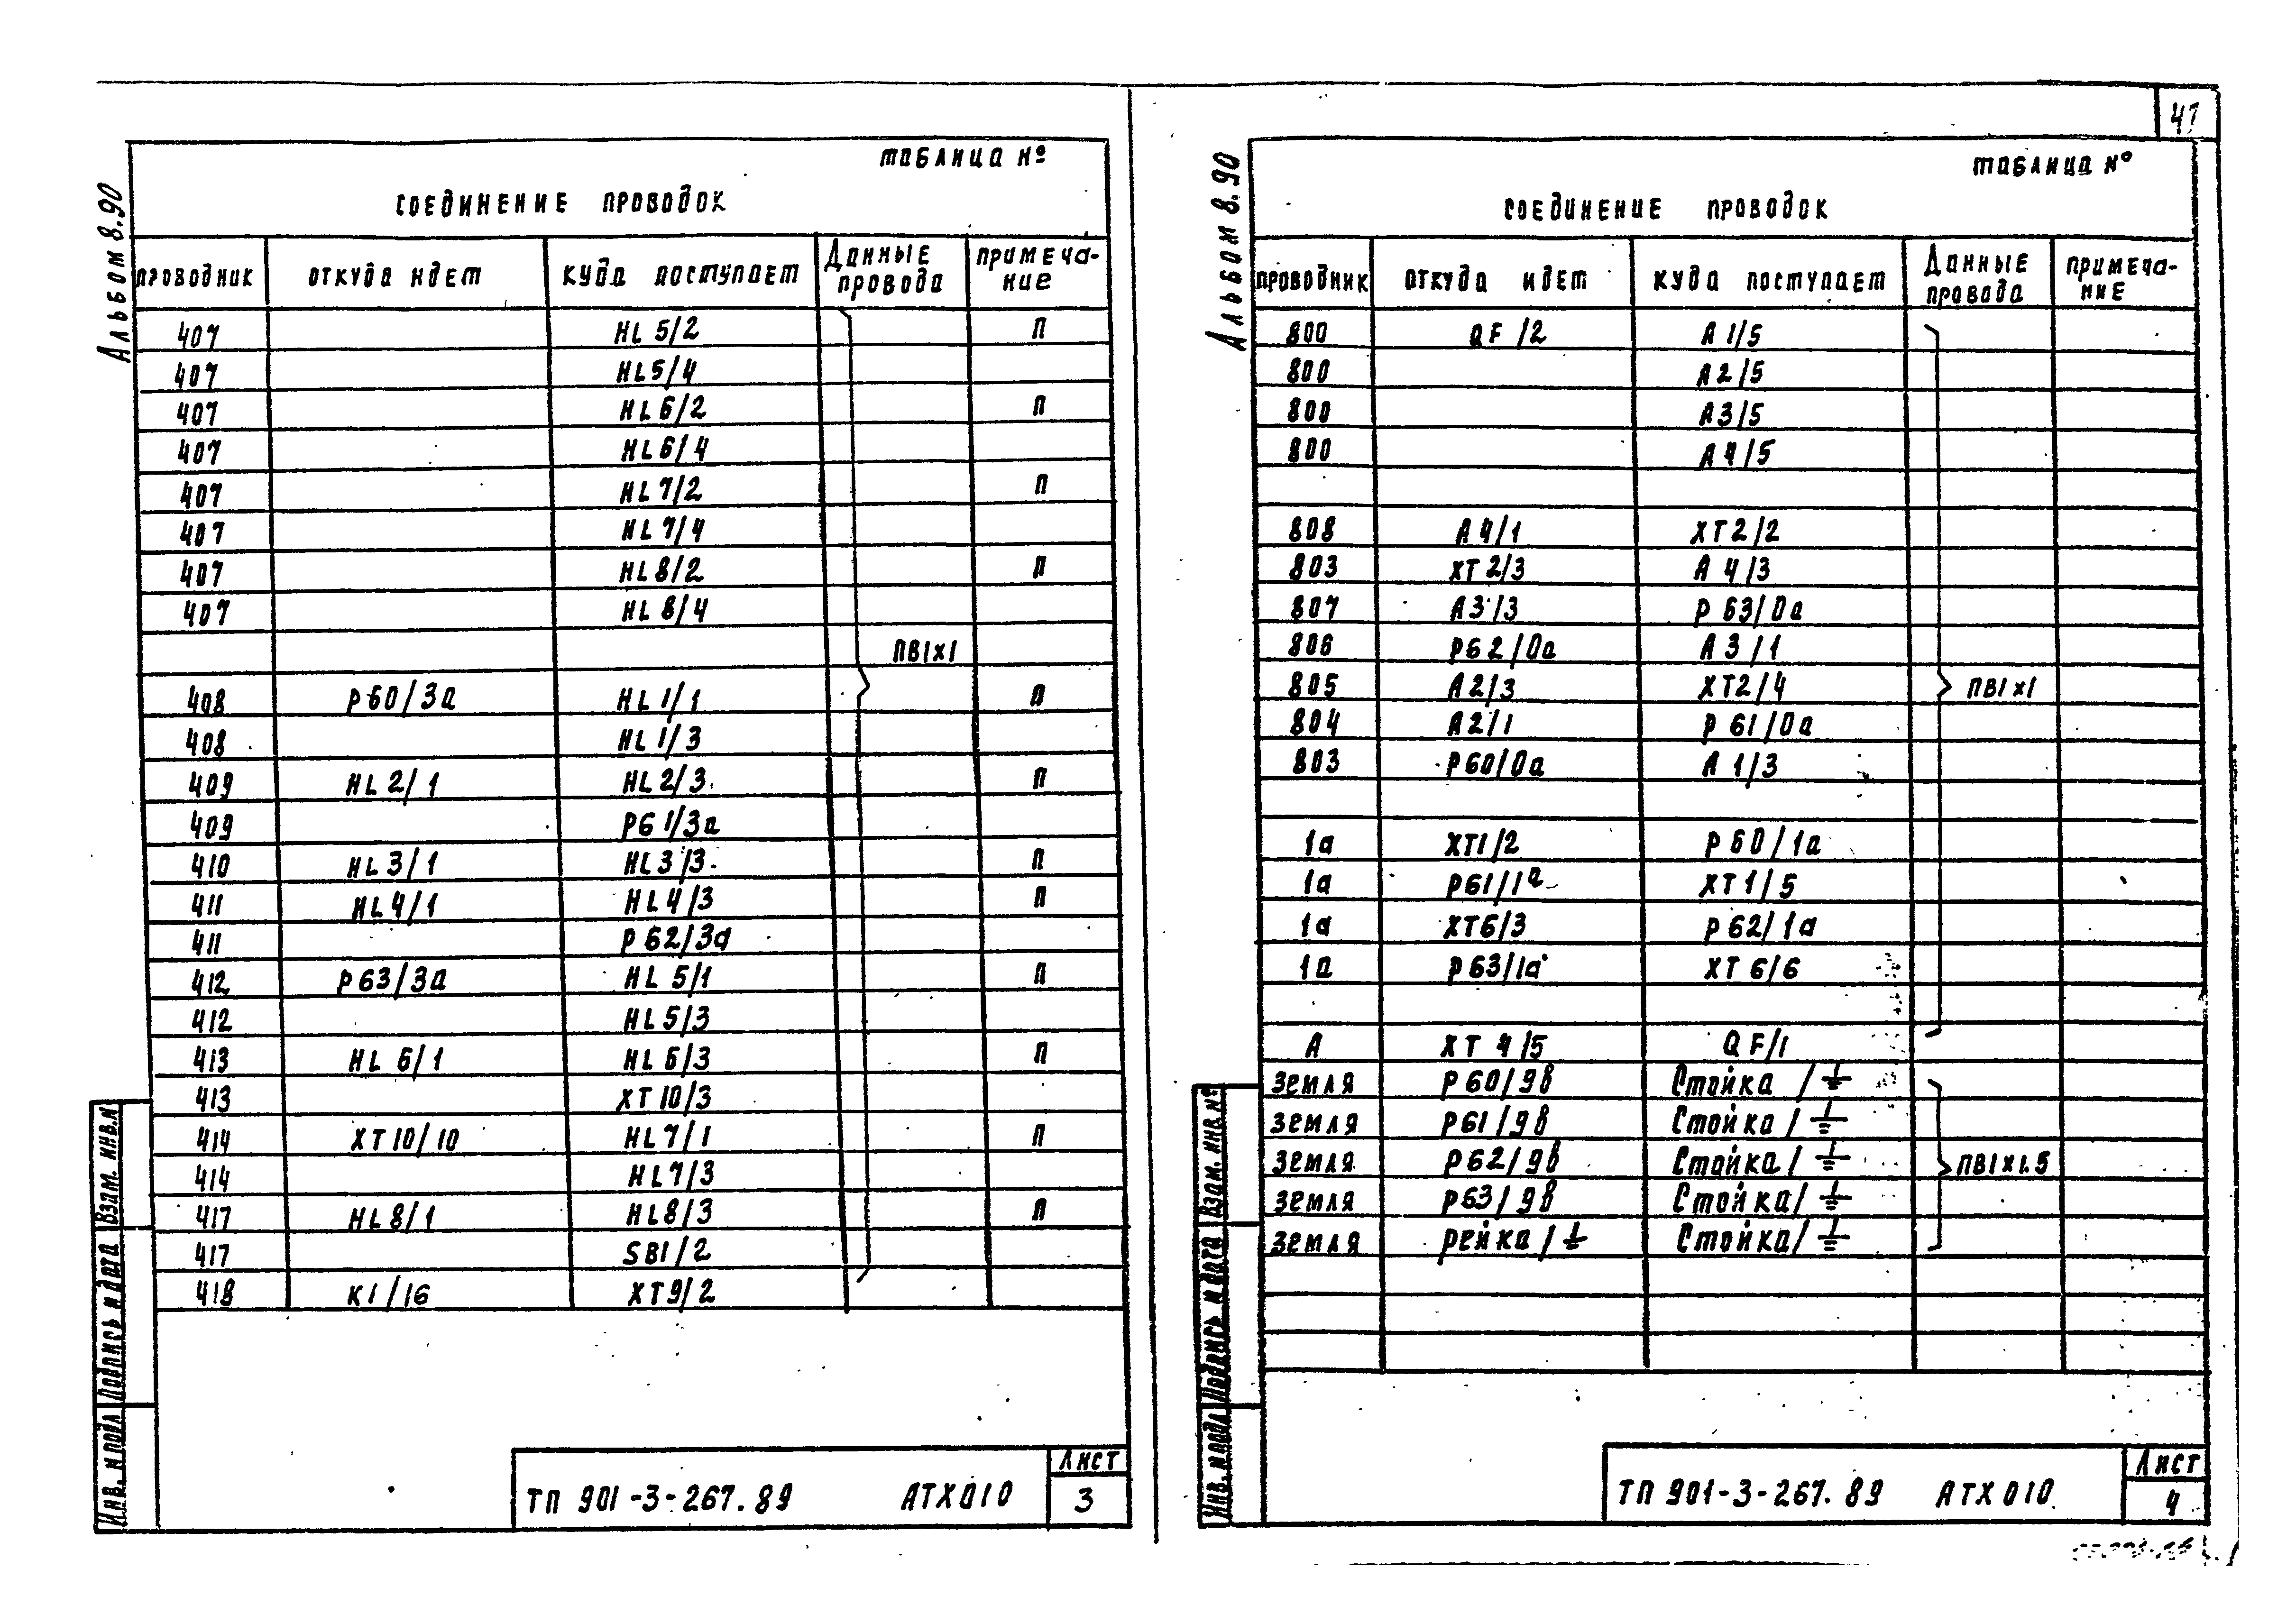 47
Альбом 8.90
таблица №
соединение проводок
проводник откуда идет куда поступает Данные провода примеча-ние
407 HL 5/2 П
407 HL5/4
407 HL6/2 П
407 HL6/4
407 HL7/2 П
407 HL7/4
407 HL8/2 П
407 HL8/4
ПВ1х1
408 Р60/3а HL1/1 П
408 HL1/3
409 HL2/1 HL2/3 П
409 Р61/3а
410 HL3/1 HL3/3 П
411 HL4/1 HL4/3 П
411 Р62/3а
412 Р63/3а HL5/1 П
412 HL5/3
413 HL6/1 HL6/3 П
413 ХТ10/3
414 ХТ10/10 HL7/1 П
414 HL7/3
417 HL8/1 HL8/3 П
417 SB1/2
418 К1/16 ХТ9/2
Взам. инв.№
Подпись и дата
Инв. № подл
ТП 901-3-267.89 АТХ010
Лист
3
Альбом 8.90
таблица №
соединение проводок
проводник откуда идет куда поступает Данные провода примеча-ние
800 QF/2 А1/5
800 А2/5
800 А3/5
800 А4/5
808 А4/1 ХТ2/2
803 ХТ2/3 А4/3
807 А3/3 Р63/0а
806 Р62/0а А3/1
805 А2/3 ХТ2/4 ПВ1х1
804 А2/1 Р61/0а
803 Р60/0а А1/3
1а ХТ1/2 Р60/1а
1а Р61/1а ХТ1/5
1а ХТ6/3 Р62/1а
1а Р63/1а ХТ6/6
А ХТ4/5 QF/1
земля Р60/9в Стойка/⏚
земля Р61/9в Стойка/⏚
земля Р62/9в Стойка/⏚ ПВ1х1.5
земля Р63/9в Стойка/⏚
земля рейка/⏚ Стойка/⏚
Взам. инв.№
Подпись и дата
Инв. № подл
ТП 901-3-267.89 АТХ010
Лист
4